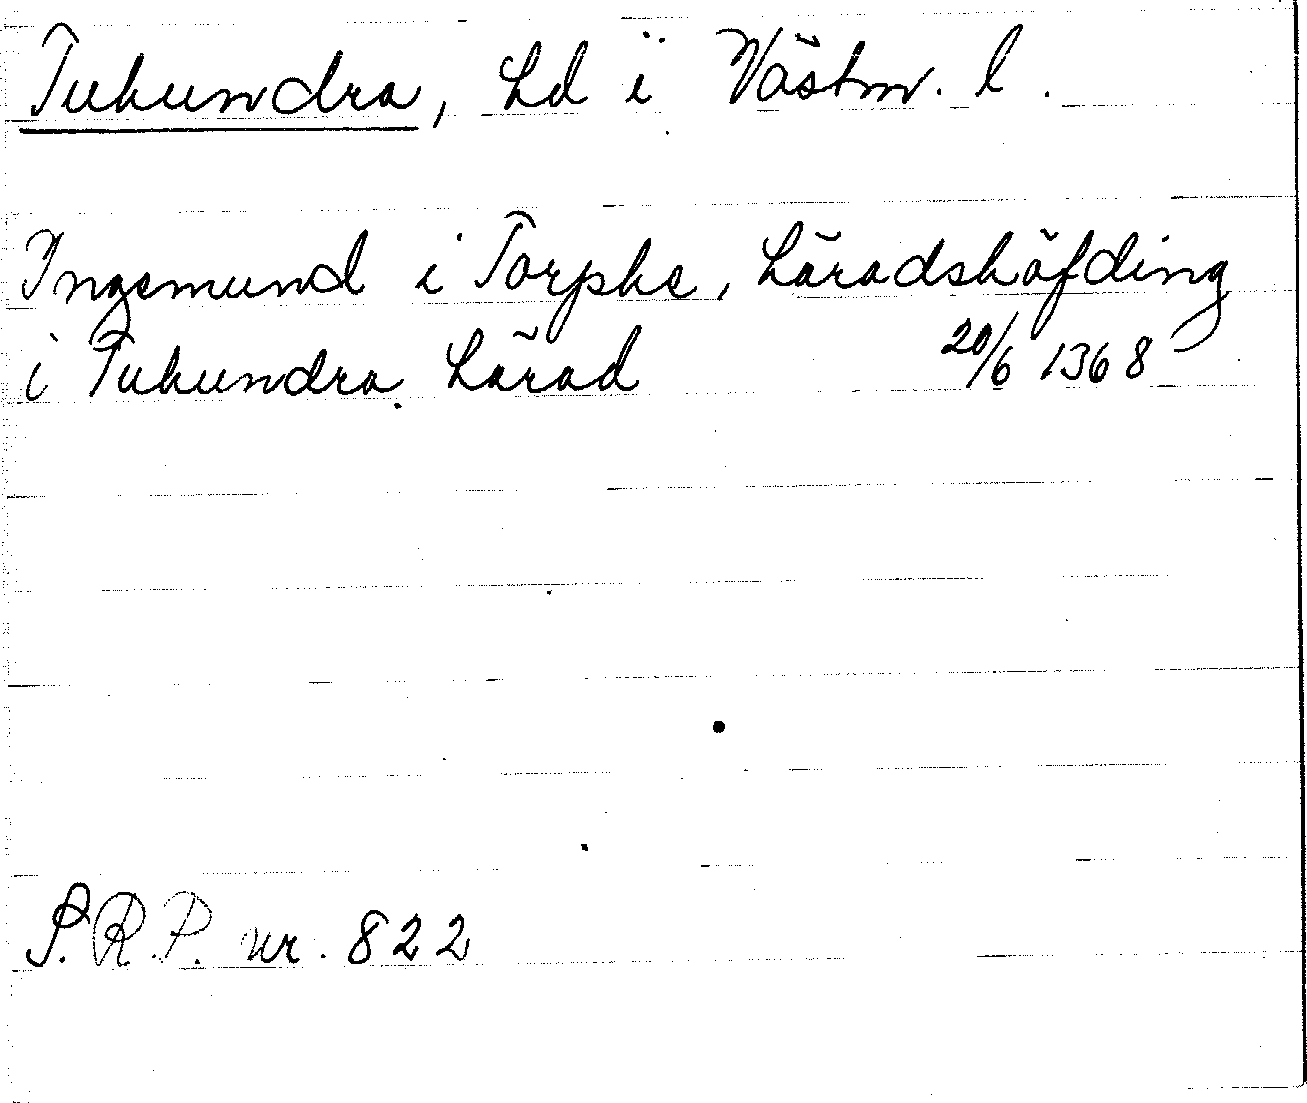 Tuhundra, hd i Västm. l.
Ingemund i Torpke, häradshöfding
i Tuhundra härad 20/6 1368
S.R.P. nr. 822